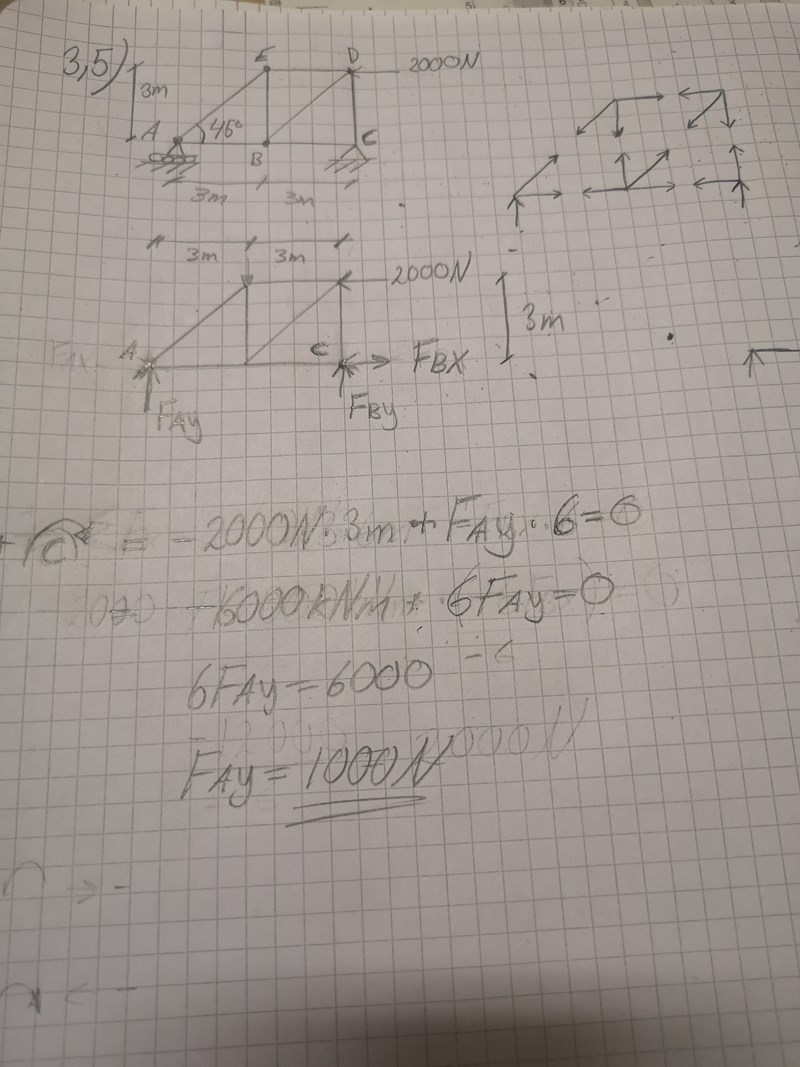 3,5)
E D 2000N
3m
A 45° C
B
3m 3m
3m 3m
2000N
3m
A C FBX
FAY FBY
+ C = - 2000N·3m + FAY · 6 = 0
- 6000kNm + 6FAY = 0
6FAY = 6000
FAY = 1000N
→ -